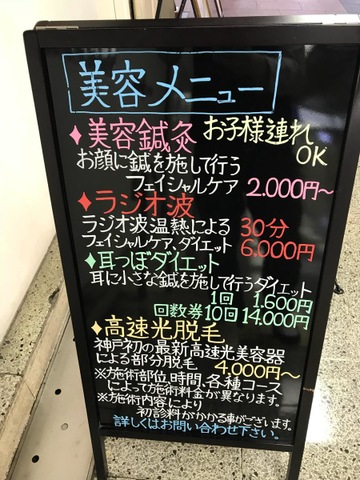 美容メニュー
♦美容鍼灸 お子様連れOK
お顔に鍼を施して行う
フェイシャルケア 2.000円~
♦ラジオ波
ラジオ波温熱による 30分
フェイシャルケア、ダイエット 6.000円
♦耳つぼダイエット
耳に小さな鍼を施して行うダイエット
1回 1.600円
回数券10回 14.000円
♦高速光脱毛
神戸初の最新高速光美容器
による部分脱毛 4,000円~
※施術部位、時間、各種コース
によって施術料金が異なります。
※施術内容により
初診料がかかる事がございます。
詳しくはお問い合わせ下さい。